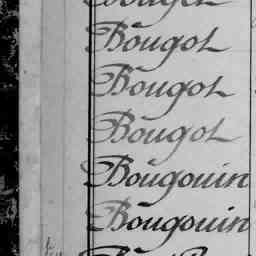 Bougot
Bougot
Bougot
Bougouin
Bougouin